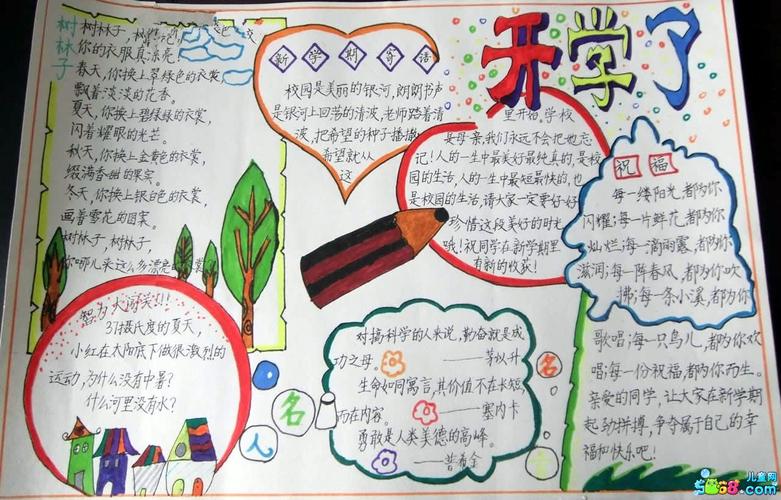 开学了
树林子
树林子,树林子,
你的衣服真漂亮!
春天,你换上翠绿色的衣裳,
飘着淡淡的花香。
夏天,你换上碧绿绿的衣裳,
闪着耀眼的光芒。
秋天,你换上金黄色的衣裳,
缀满香甜的果实。
冬天,你换上银白色的衣裳,
画着雪花的图案。
树林子,树林子,
你哪儿来这么多漂亮的衣裳
新学期寄语
校园是美丽的银河,朗朗书声
是银河上回荡的清波,老师踏着清
波,把希望的种子播撒
希望就从
这
里开始,学校
母亲,我们永远不会把她忘
记!人的一生中最美好最纯真的,是校
园的生活,人的一生中最短最快的,也
是校园的生活,请大家一定要好好
珍惜这段美好的时光
哦!祝同学在新学期里
有新的收获!
祝福
每一缕阳光,都为你
闪耀;每一片鲜花,都为你
灿烂;每一滴雨露,都为你
滋润;每一阵春风,都为你吹
拂;每一条小溪,都为你
歌唱;每一只鸟儿,都为你欢
唱;每一份祝福,都为你而生。
亲爱的同学,让大家在新学期
起劲拼搏,争夺属于自己的幸
福和快乐吧!
智力大闯关!!!
37摄氏度的夏天,
小红在太阳底下做很激烈的
运动,为什么没有中暑?
什么河里没有水?
名人名言
对搞科学的人来说,勤奋就是成
功之母。
——茅以升
生命如同寓言,其价值不在长短,
而在内容。——塞内卡
勇敢是人类美德的高峰。
——普希金
儿童网
5068.com